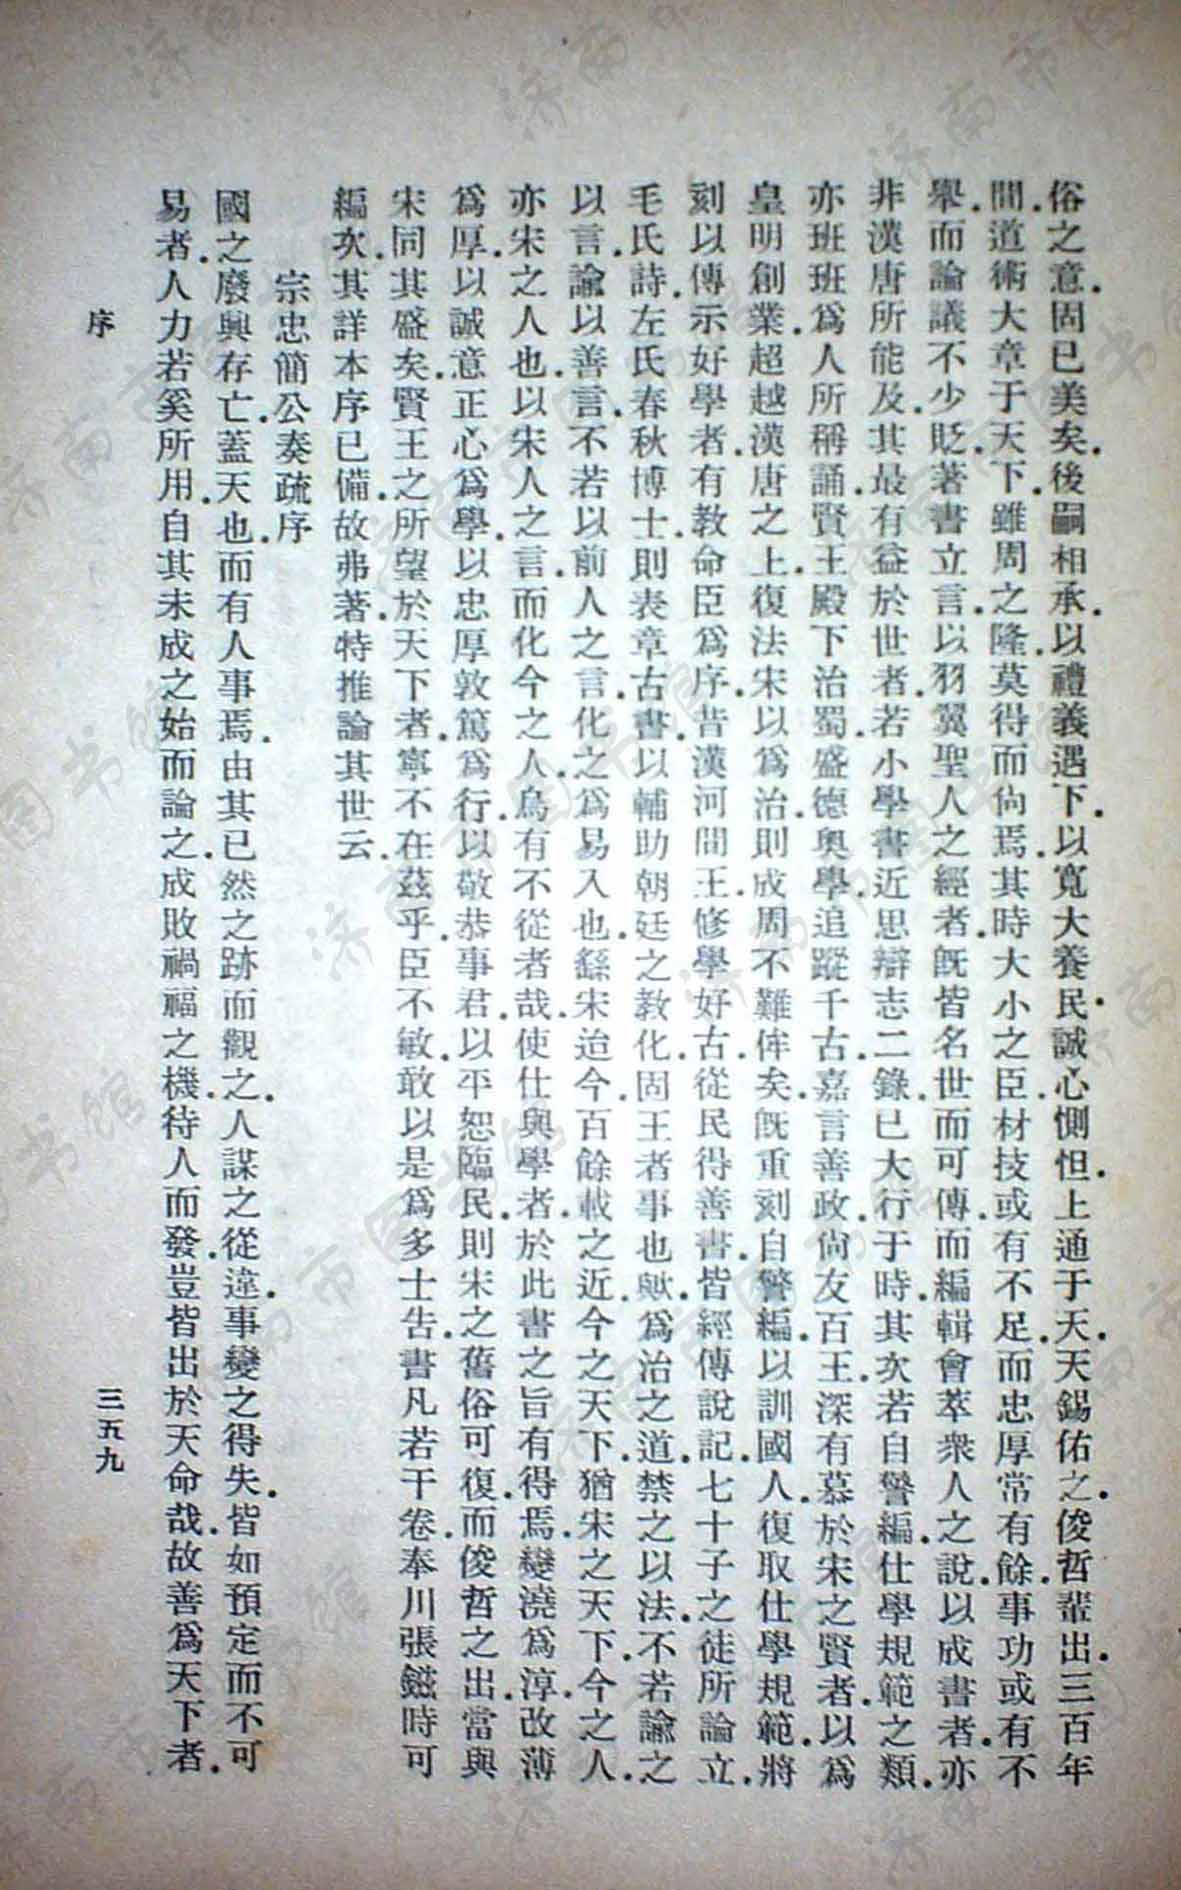 俗之意固已美矣後嗣相承以禮義遇下以寬大養民誠心惻怛上通于天天錫佑之俊哲輩出三百年
間道術大章于天下雖周之隆莫得而尙焉其時大小之臣材技或有不足而忠厚常有餘事功或有不
舉而論議不少貶著書立言以羽翼聖人之經者旣皆名世而可傳而編輯會萃衆人之說以成書者亦
非漢唐所能及其最有益於世者若小學書近思辯志二錄已大行于時其次若自警編仕學規範之類
亦班班爲人所稱誦賢王殿下治蜀盛德奥學追蹤千古嘉言善政尙友百王深有慕於宋之賢者以爲
皇明創業超越漢唐之上復法宋以爲治則成周不難侔矣旣重刻自警編以訓國人復取仕學規範將
刻以傳示好學者有教命臣爲序昔漢河間王修學好古從民得善書皆經傳說記七十子之徒所論立
毛氏詩左氏春秋博士則表章古書以輔助朝廷之教化固王者事也歟爲治之道禁之以法不若諭之
以言諭以善言不若以前人之言化之爲易入也繇宋迨今百餘載之近今之天下猶宋之天下今之人
亦宋之人也以宋人之言而化今之人烏有不從者哉使仕與學者於此書之旨有得焉變澆爲淳改薄
爲厚以誠意正心爲學以忠厚敦篤爲行以敬恭事君以平恕臨民則宋之舊俗可復而俊哲之出當與
宋同其盛矣賢王之所望於天下者寧不在茲乎臣不敏敢以是爲多士告書凡若干卷奉川張鎡時可
編次其詳本序已備故弗著特推論其世云
宗忠簡公奏疏序
國之廢興存亡蓋天也而有人事焉由其已然之跡而觀之人謀之從違事變之得失皆如預定而不可
易者人力若奚所用自其未成之始而論之成敗禍福之機待人而發豈皆出於天命哉故善爲天下者
序
三五九
济南市图书馆